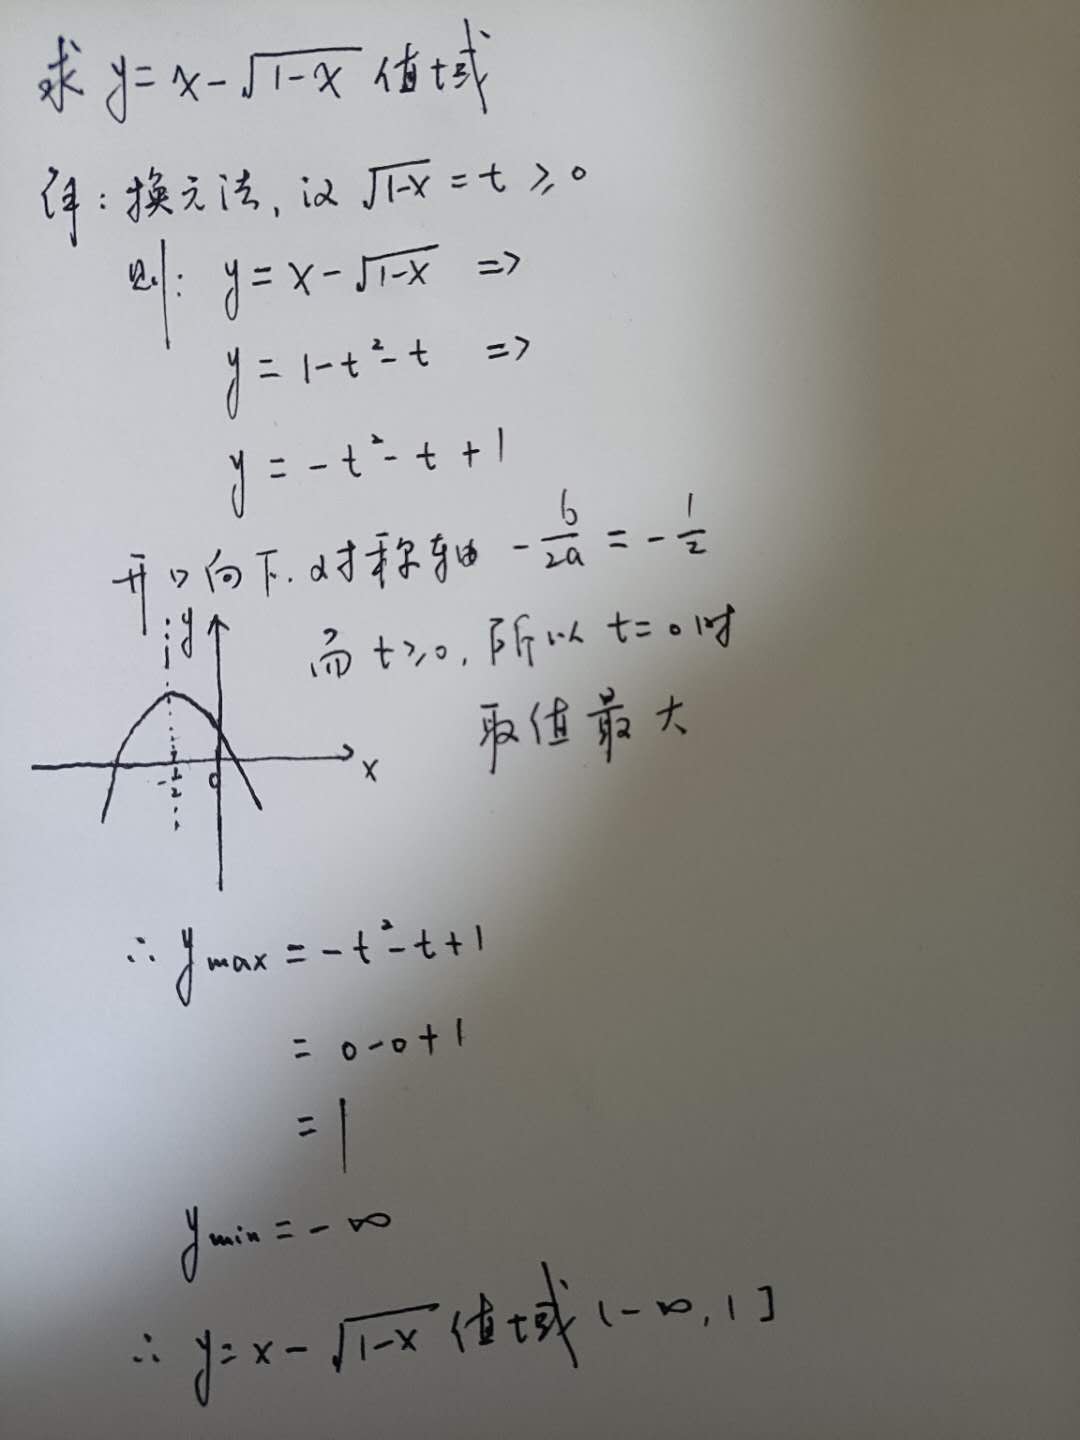 求 y=x-√(1-x) 值域
解：换元法，设 √(1-x) = t ≥ 0
则：y = x-√(1-x) =>
y = 1-t²-t =>
y = -t²-t+1
开口向下，对称轴 -b/2a = -1/2
而 t≥0，所以 t=0时
取值最大
y
x
-1/2
0
∴ ymax = -t²-t+1
= 0-0+1
= 1
ymin = -∞
∴ y=x-√(1-x) 值域 (-∞,1]